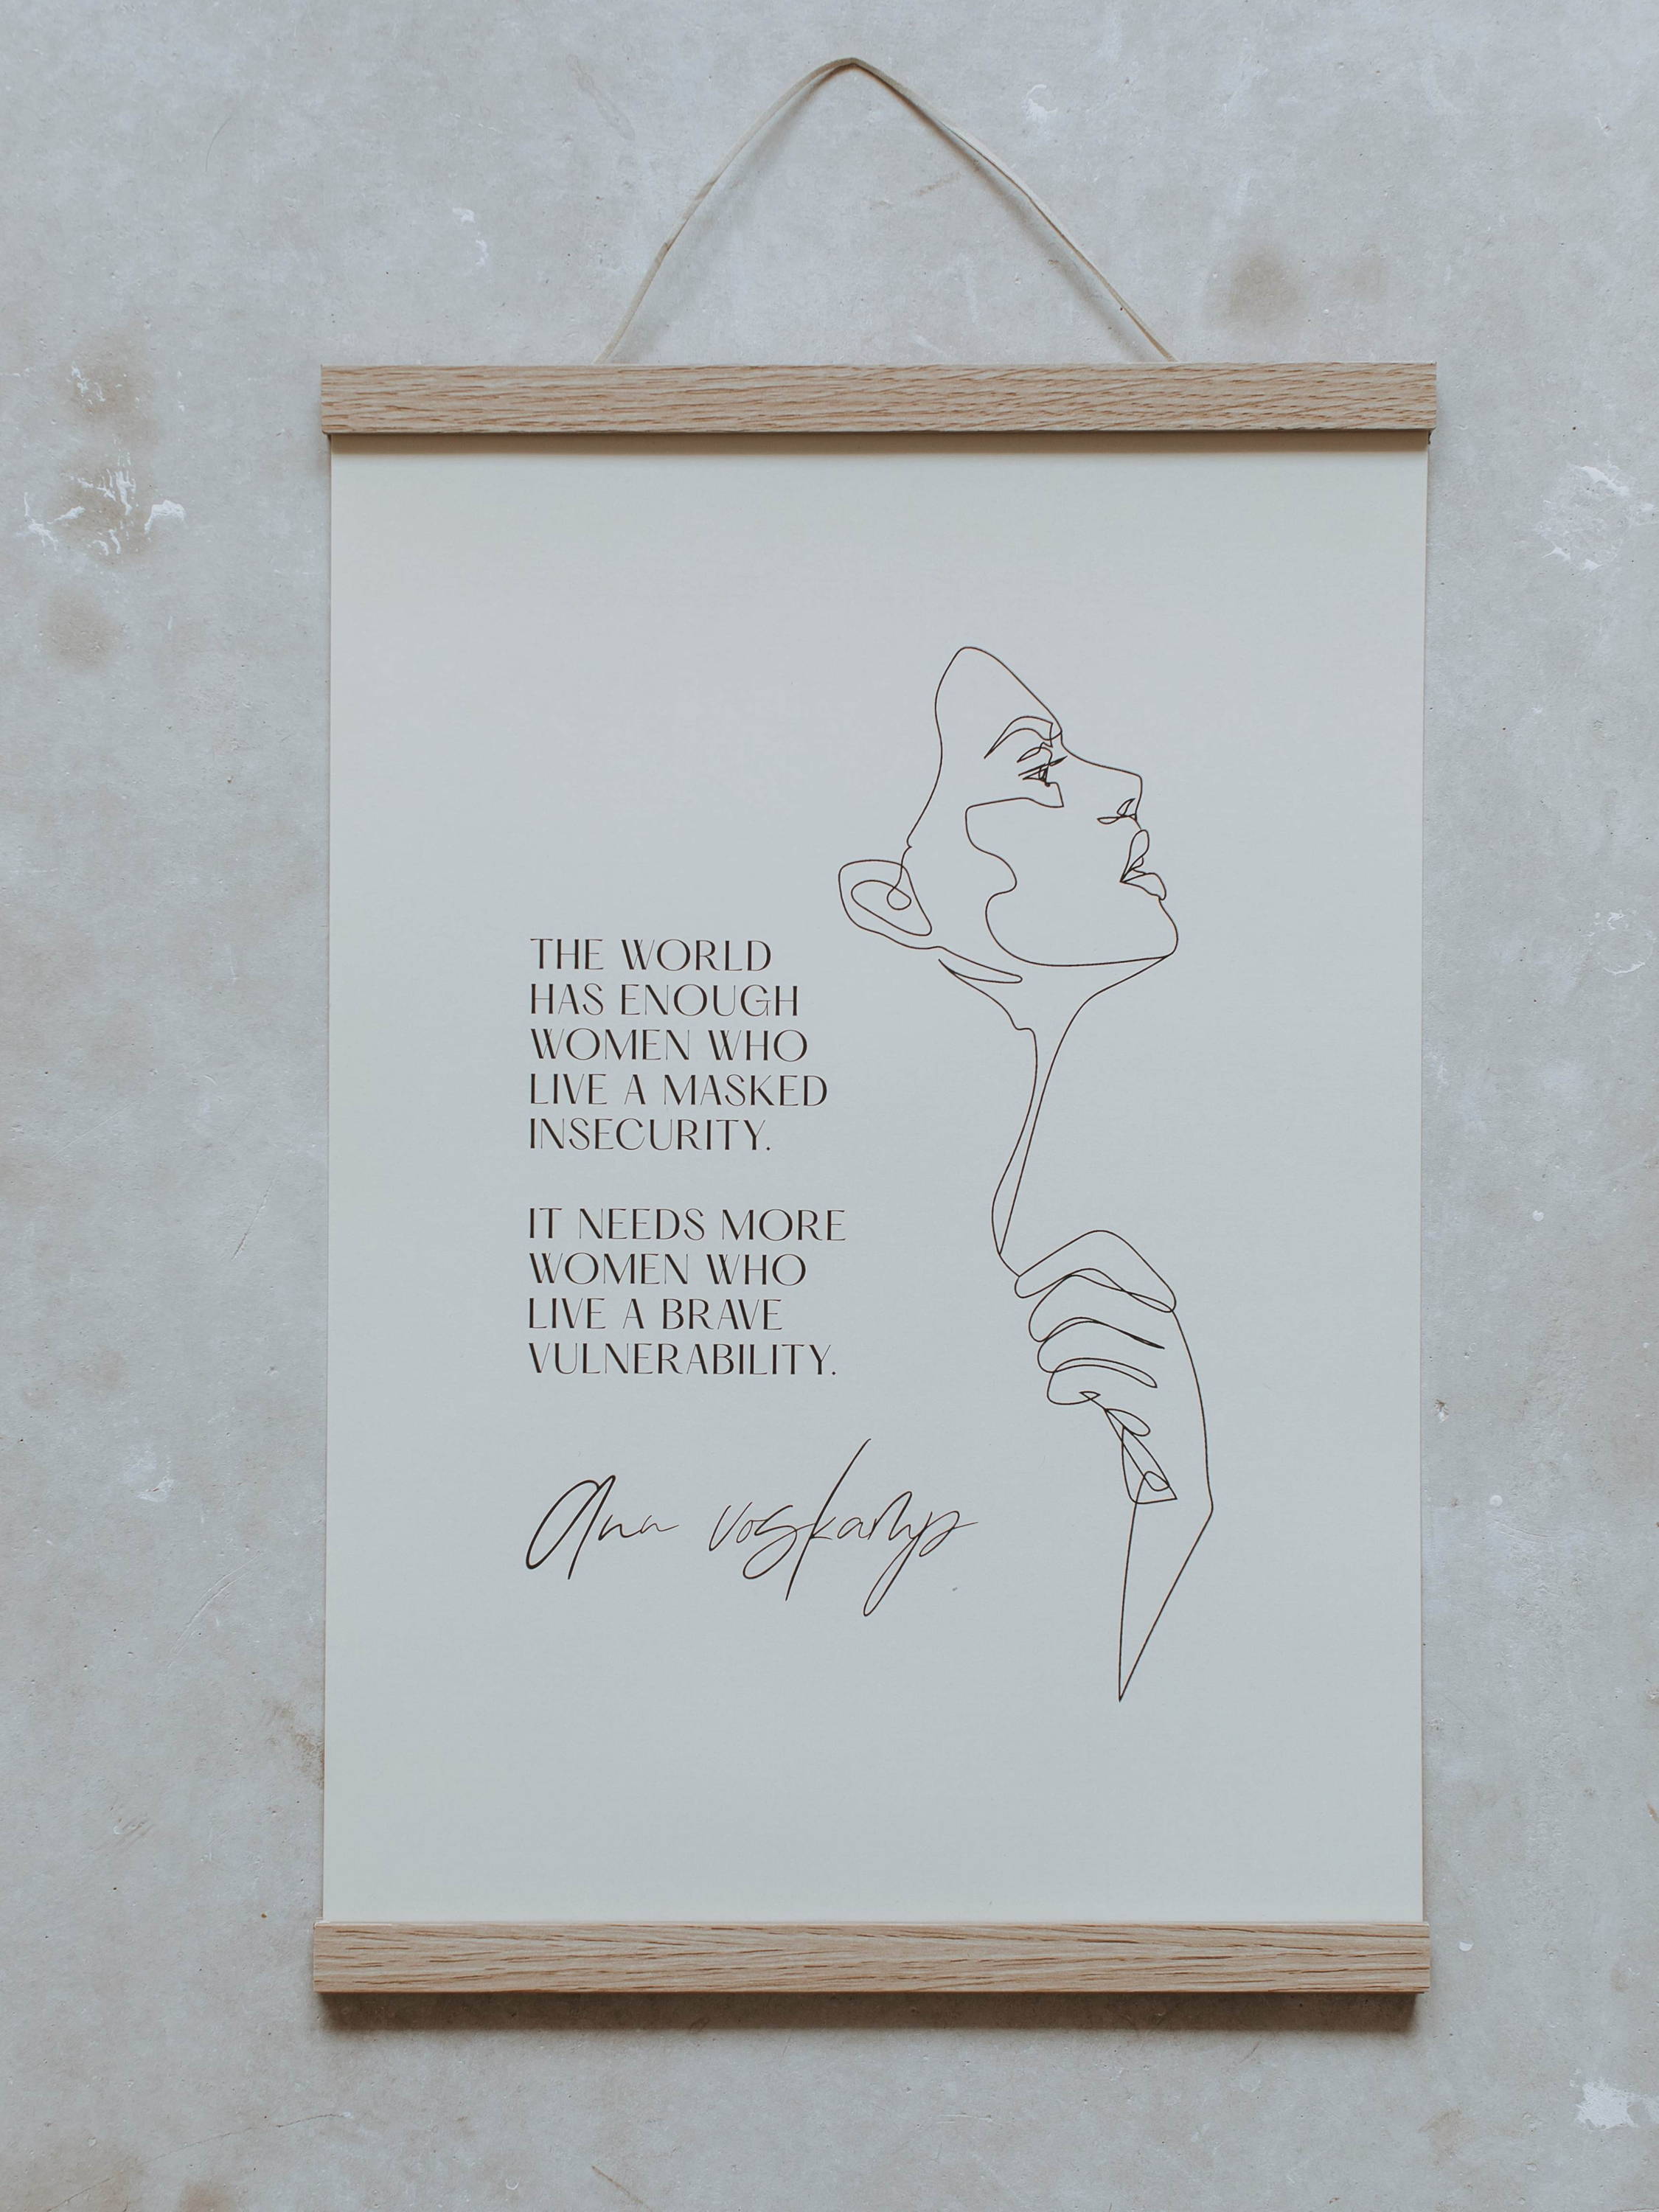 THE WORLD
HAS ENOUGH
WOMEN WHO
LIVE A MASKED
INSECURITY.
IT NEEDS MORE
WOMEN WHO
LIVE A BRAVE
VULNERABILITY.
Ann voskamp